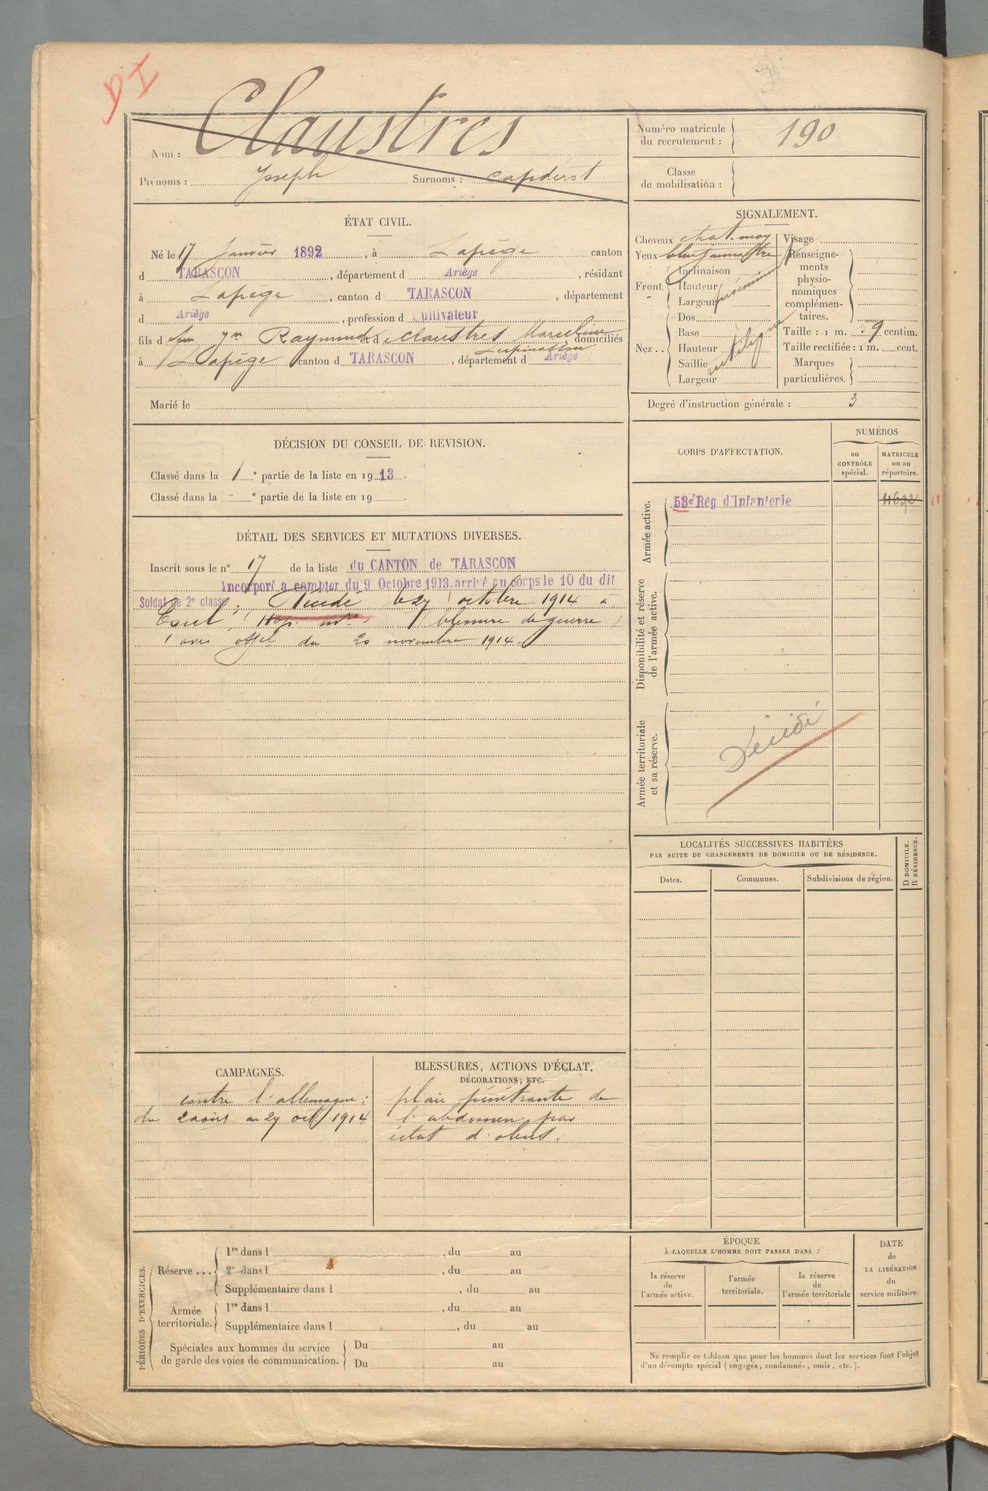 DI
Nom : Claustres
Prénoms : Joseph Surnoms : capdérst
Numéro matricule du recrutement : 190
Classe de mobilisation :
ÉTAT CIVIL.
Né le 17 Janvier 1892, à Lapège canton
d TARASCON, département d Ariège, résidant
à Lapège, canton d TARASCON, département
d Ariège, profession d Cultivateur
fils d feu Jn Raymond et d Claustres Marceline domiciliés
à Lapège canton d TARASCON, département d Ariège
Marié le
SIGNALEMENT.
Cheveux chat. moy
Yeux
Front
Inclinaison
Hauteur
Largeur
Nez ..
Dos
Base
Hauteur
Saillie
Largeur
Visage
Renseignements physionomiques complémentaires.
Taille : 1 m. 59 centim.
Taille rectifiée : 1 m. cent.
Marques particulières.
Degré d'instruction générale : 3
DÉCISION DU CONSEIL DE REVISION.
Classé dans la 1 e partie de la liste en 1913.
Classé dans la - e partie de la liste en 19
DÉTAIL DES SERVICES ET MUTATIONS DIVERSES.
Inscrit sous le n° 17 de la liste du CANTON de TARASCON
Incorporé à compter du 9 Octobre 1913, arrivé au corps le 10 du dit
Soldat de 2e classe; Décédé le 27 octobre 1914 à
Toul, (Hop. mre) (blessure de guerre)
(avis offel du 20 novembre 1914.)
CORPS D'AFFECTATION.
NUMÉROS
au CONTRÔLE spécial.
MATRICULE ou au répertoire.
Armée active.
53e Rég d'Infanterie
Disponibilité et réserve de l'armée active.
Armée territoriale et sa réserve.
Décédé
LOCALITÉS SUCCESSIVES HABITÉES
PAR SUITE DE CHANGEMENTS DE DOMICILE OU DE RÉSIDENCE.
Dates.
Communes.
Subdivisions de région.
D DOMICILE.
R RÉSIDENCE.
CAMPAGNES.
contre l'allemagne :
du 2 août au 27 oct 1914
BLESSURES, ACTIONS D'ÉCLAT,
DÉCORATIONS, ETC.
plaie pénétrante de
l'abdomen par
éclat d'obus.
PÉRIODES D'EXERCICES.
Réserve ...
1re dans l , du au
2e dans l , du au
Supplémentaire dans l , du au
Armée territoriale.
1re dans l , du au
Supplémentaire dans l , du au
Spéciales aux hommes du service de garde des voies de communication.
Du au
Du au
ÉPOQUE
À LAQUELLE L'HOMME DOIT PASSER DANS :
la réserve de l'armée active.
l'armée territoriale.
la réserve de l'armée territoriale
DATE de LA LIBÉRATION du service militaire.
Ne remplir ce tableau que pour les hommes dont les services font l'objet
d'un décompte spécial (engagés, condamnés, omis, etc.).